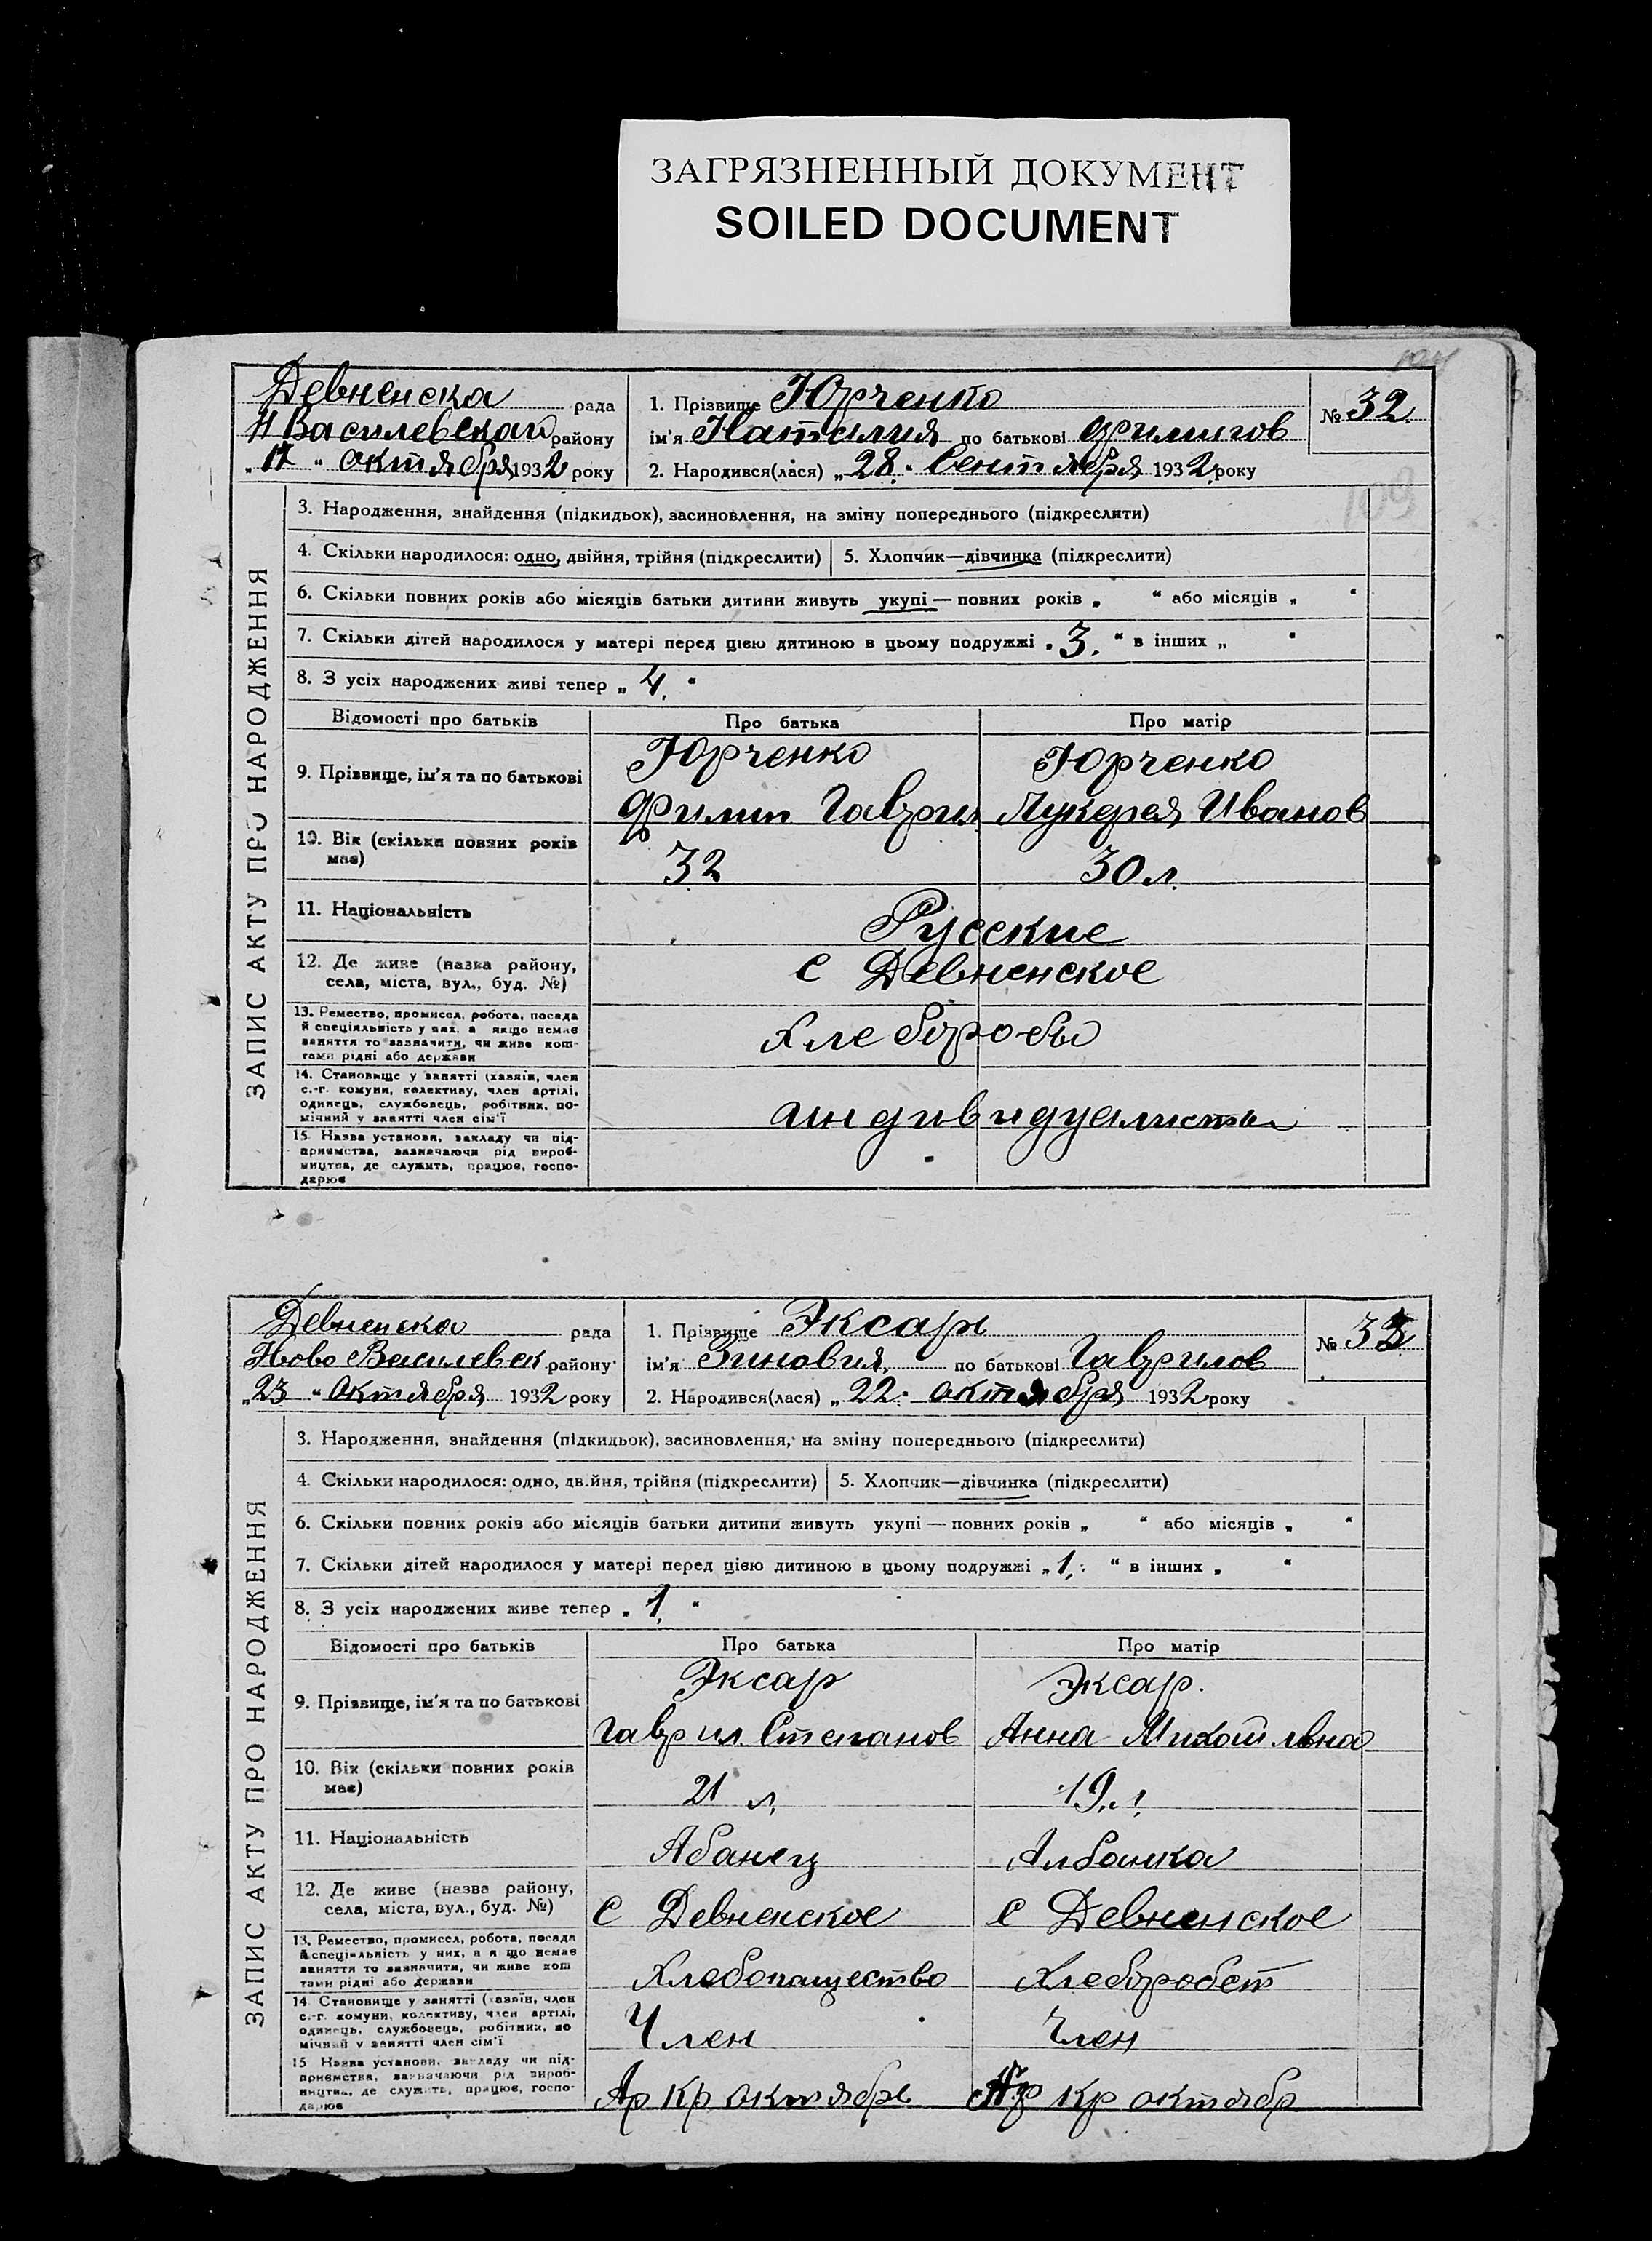 ЗАГРЯЗНЕННЫЙ ДОКУМЕНТ
SOILED DOCUMENT
109
Девненска рада
Н Василевскаго району
"17" октября 1932 року
1. Прізвище Юрченко
ім'я Наталия по батькові Филипов
2. Народився(лася) „28" Сентября 1932 року
№ 32
ЗАПИС АКТУ ПРО НАРОДЖЕННЯ
3. Народження, знайдення (підкидьок), засиновлення, на зміну попереднього (підкреслити)
4. Скільки народилося: одно, двійня, трійня (підкреслити) 5. Хлопчик—дівчинка (підкреслити)
6. Скільки повних років або місяців батьки дитини живуть укупі — повних років „ “ або місяців „ “
7. Скільки дітей народилося у матері перед цією дитиною в цьому подружжі „3.“ в інших „ “
8. З усіх народжених живі тепер „4.“
Відомості про батьків Про батька Про матір
9. Прізвище, ім'я та по батькові
Юрченко Юрченко
Филип Гаврил Лукерея Иванов
10. Вік (скільки повних років
має)
32 30 л.
11. Національність
Русские
12. Де живе (назва району,
села, міста, вул., буд. №)
с Девненское
13. Ремество, промисел, робота, посада
й спеціяльність у них, а якщо немає
заняття то зазначити, чи живе кош-
тами рідні або держави
Хлеборобы
14. Становище у занятті (хазяїн, член
с.-г. комуни, колективу, член артілі,
одинець, службовець, робітник, по-
мічний у занятті член сім'ї
индивидуалисты
15. Назва установи, закладу чи під-
приємства, зазначаючи рід вироб-
ництва, де служить, працює, госпо-
дарює
Девненска рада
Ново Василевск району
„23“ октября 1932 року
1. Прізвище Эксарь
ім'я Зиновия по батькові Гаврилов
2. Народився(лася) „22“ октября 1932 року
№ 33
ЗАПИС АКТУ ПРО НАРОДЖЕННЯ
3. Народження, знайдення (підкидьок), засиновлення, на зміну попереднього (підкреслити)
4. Скільки народилося: одно, двійня, трійня (підкреслити) 5. Хлопчик—дівчинка (підкреслити)
6. Скільки повних років або місяців батьки дитини живуть укупі — повних років „ “ або місяців „ “
7. Скільки дітей народилося у матері перед цією дитиною в цьому подружжі „1.“ в інших „ “
8. З усіх народжених живе тепер „1.“
Відомості про батьків Про батька Про матір
9. Прізвище, ім'я та по батькові
Эксар Эксар.
Гаврил Степанов Анна Михайльвна
10. Вік (скільки повних років
має)
21 л. 19 л.
11. Національність
Абанец Албанка
12. Де живе (назва району,
села, міста, вул., буд. №)
с Девненское с Девненское
13. Ремество, промисел, робота, посада
й спеціяльність у них, а якщо немає
заняття то зазначити, чи живе кош
тами рідні або держави
Хлебопашество Хлеборобст
14. Становище у занятті (хазяїн, член
с.-г. комуни, колективу, член артілі,
одинець, службовець, робітник, по
мічний у занятті член сім'ї
Член Член
15 Назва установи, закладу чи під-
приємства, зазначаючи рід вироб-
ництва, де служить, працює, госпо-
дарює
Ар Кр октябрь Ар Кр октябр